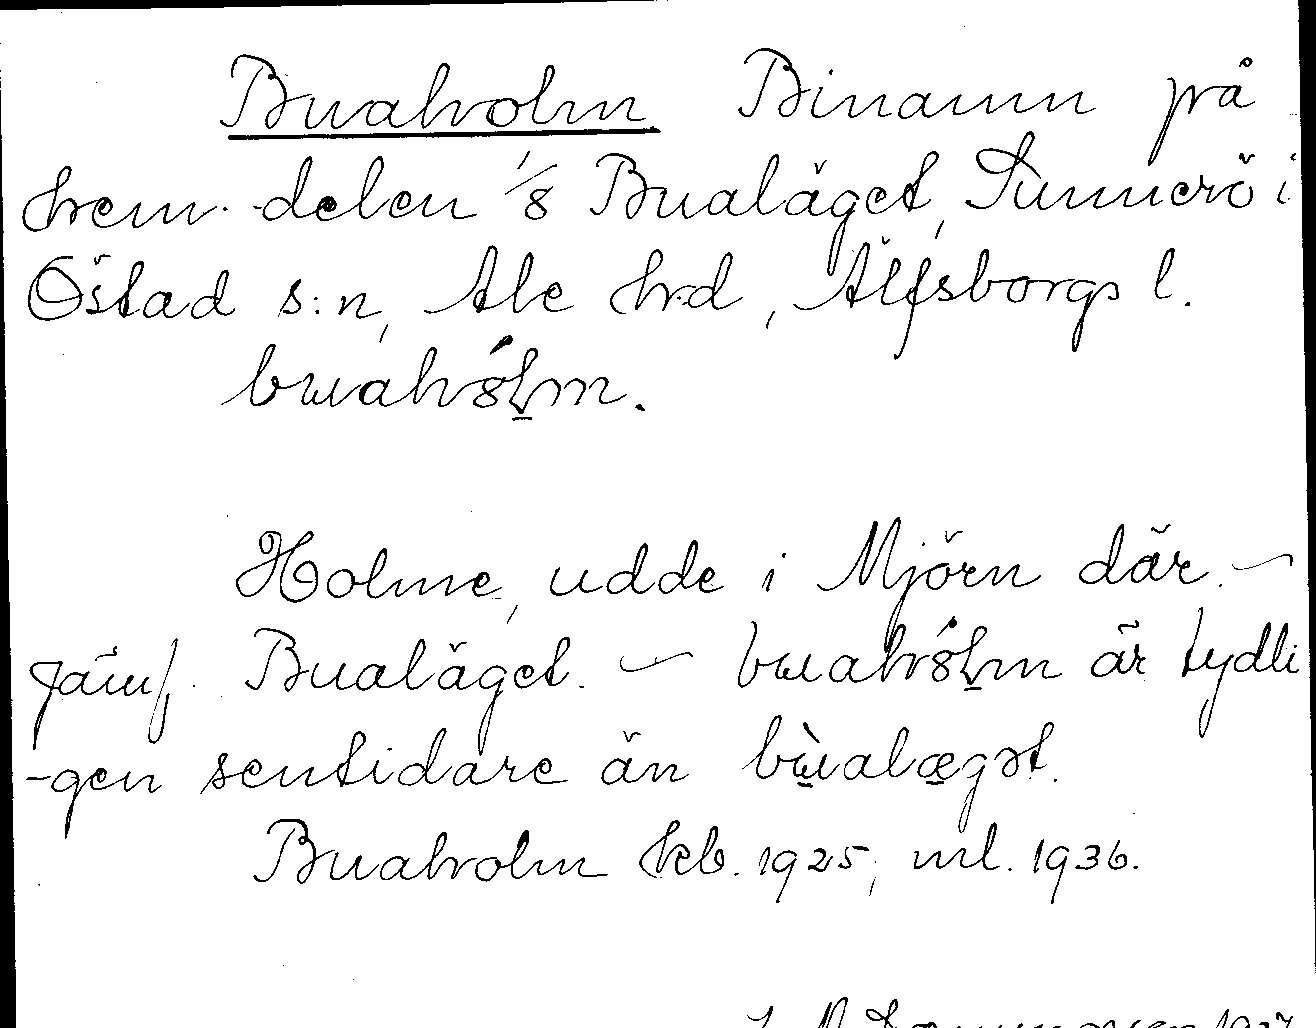 Buaholm Binamn på
hem.-delen 1/8 Bualäget, Sunnerö i
Östad s:n, Ale hrd, Älfsborgs l.
buahólm.
Holme, udde i Mjörn där. –
Jämf. Bualäget. – buahólm är tydli
-gen sentidare än bùalægət.
Buaholm kb. 1925, ml. 1936.